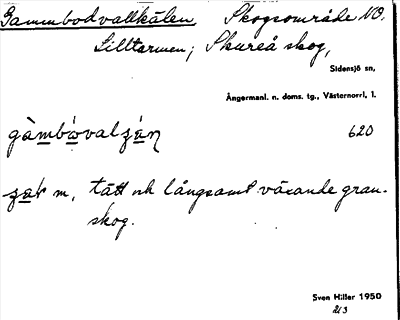 Gammbodvallkälen Skogsområde NO.
Lilltarmen; Skureå skog,
Sidensjö sn,
Ångermanl. n. doms. tg., Västernorrl. l.
620
m, tätt och långsamt växande gran-
skog.
Sven Hiller 1950